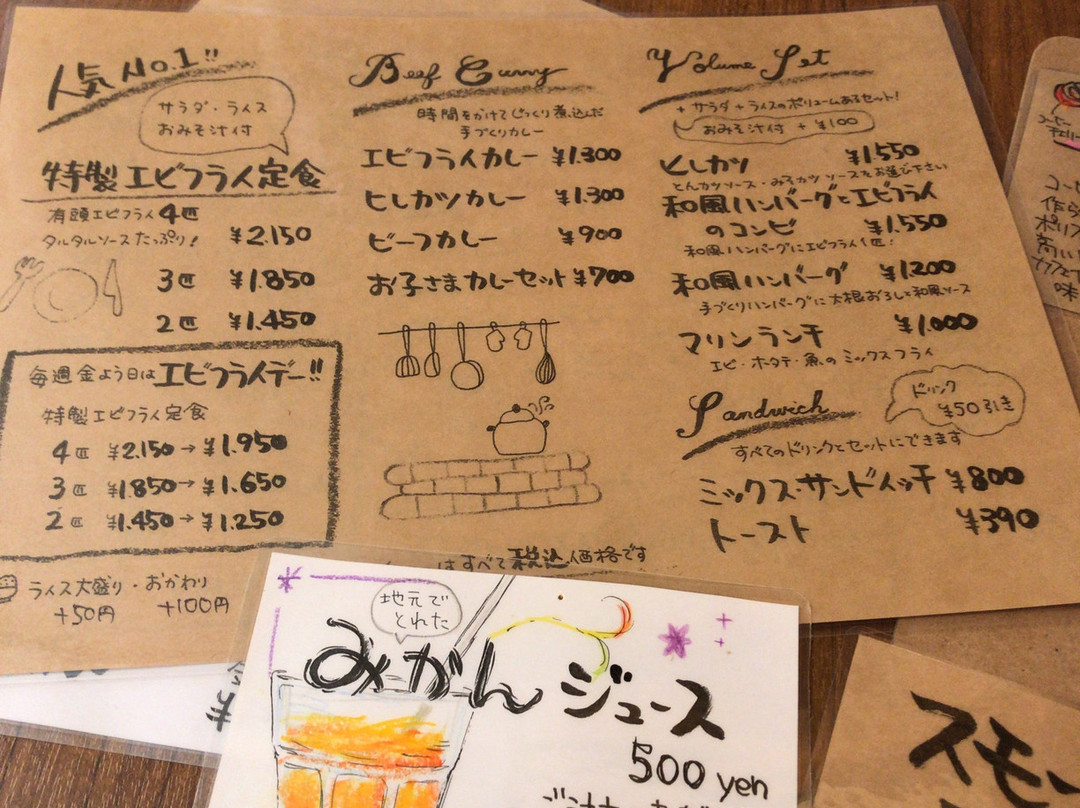 人気No.1!!
サラダ・ライス
おみそ汁付
特製エビフライ定食
有頭エビフライ4匹
タルタルソースたっぷり! ¥2.150
3匹 ¥1.850
2匹 ¥1.450
毎週金よう日はエビフライデー!!
特製エビフライ定食
4匹 ¥2.150→¥1.950
3匹 ¥1.850→¥1.650
2匹 ¥1.450→¥1.250
ライス大盛り・おかわり
+50円 +100円
Beef Curry
時間をかけてじっくり煮込んだ
手づくりカレー
エビフライカレー ¥1.300
ヒレカツカレー ¥1.300
ビーフカレー ¥900
お子さまカレーセット ¥700
はすべて税込価格です
Volume Set
+サラダ+ライスのボリュームあるセット!
おみそ汁付 +¥100
ヒレカツ ¥1.550
とんカツソース・みそカツソースをお選び下さい
和風ハンバーグとエビフライ
のコンビ ¥1.550
和風ハンバーグにエビフライ1匹!
和風ハンバーグ ¥1.200
手づくりハンバーグに大根おろしと和風ソース
マリンランチ ¥1.000
エビ・ホタテ・魚のミックスフライ
Sandwich
ドリンク
¥50引き
すべてのドリンクとセットにできます
ミックス・サンドイッチ ¥800
トースト ¥390
地元で
とれた
みかんジュース
500 yen
コーヒー
チェリー
コーヒ
作ら
ポリフ
高い
カフェイ
味
スモ